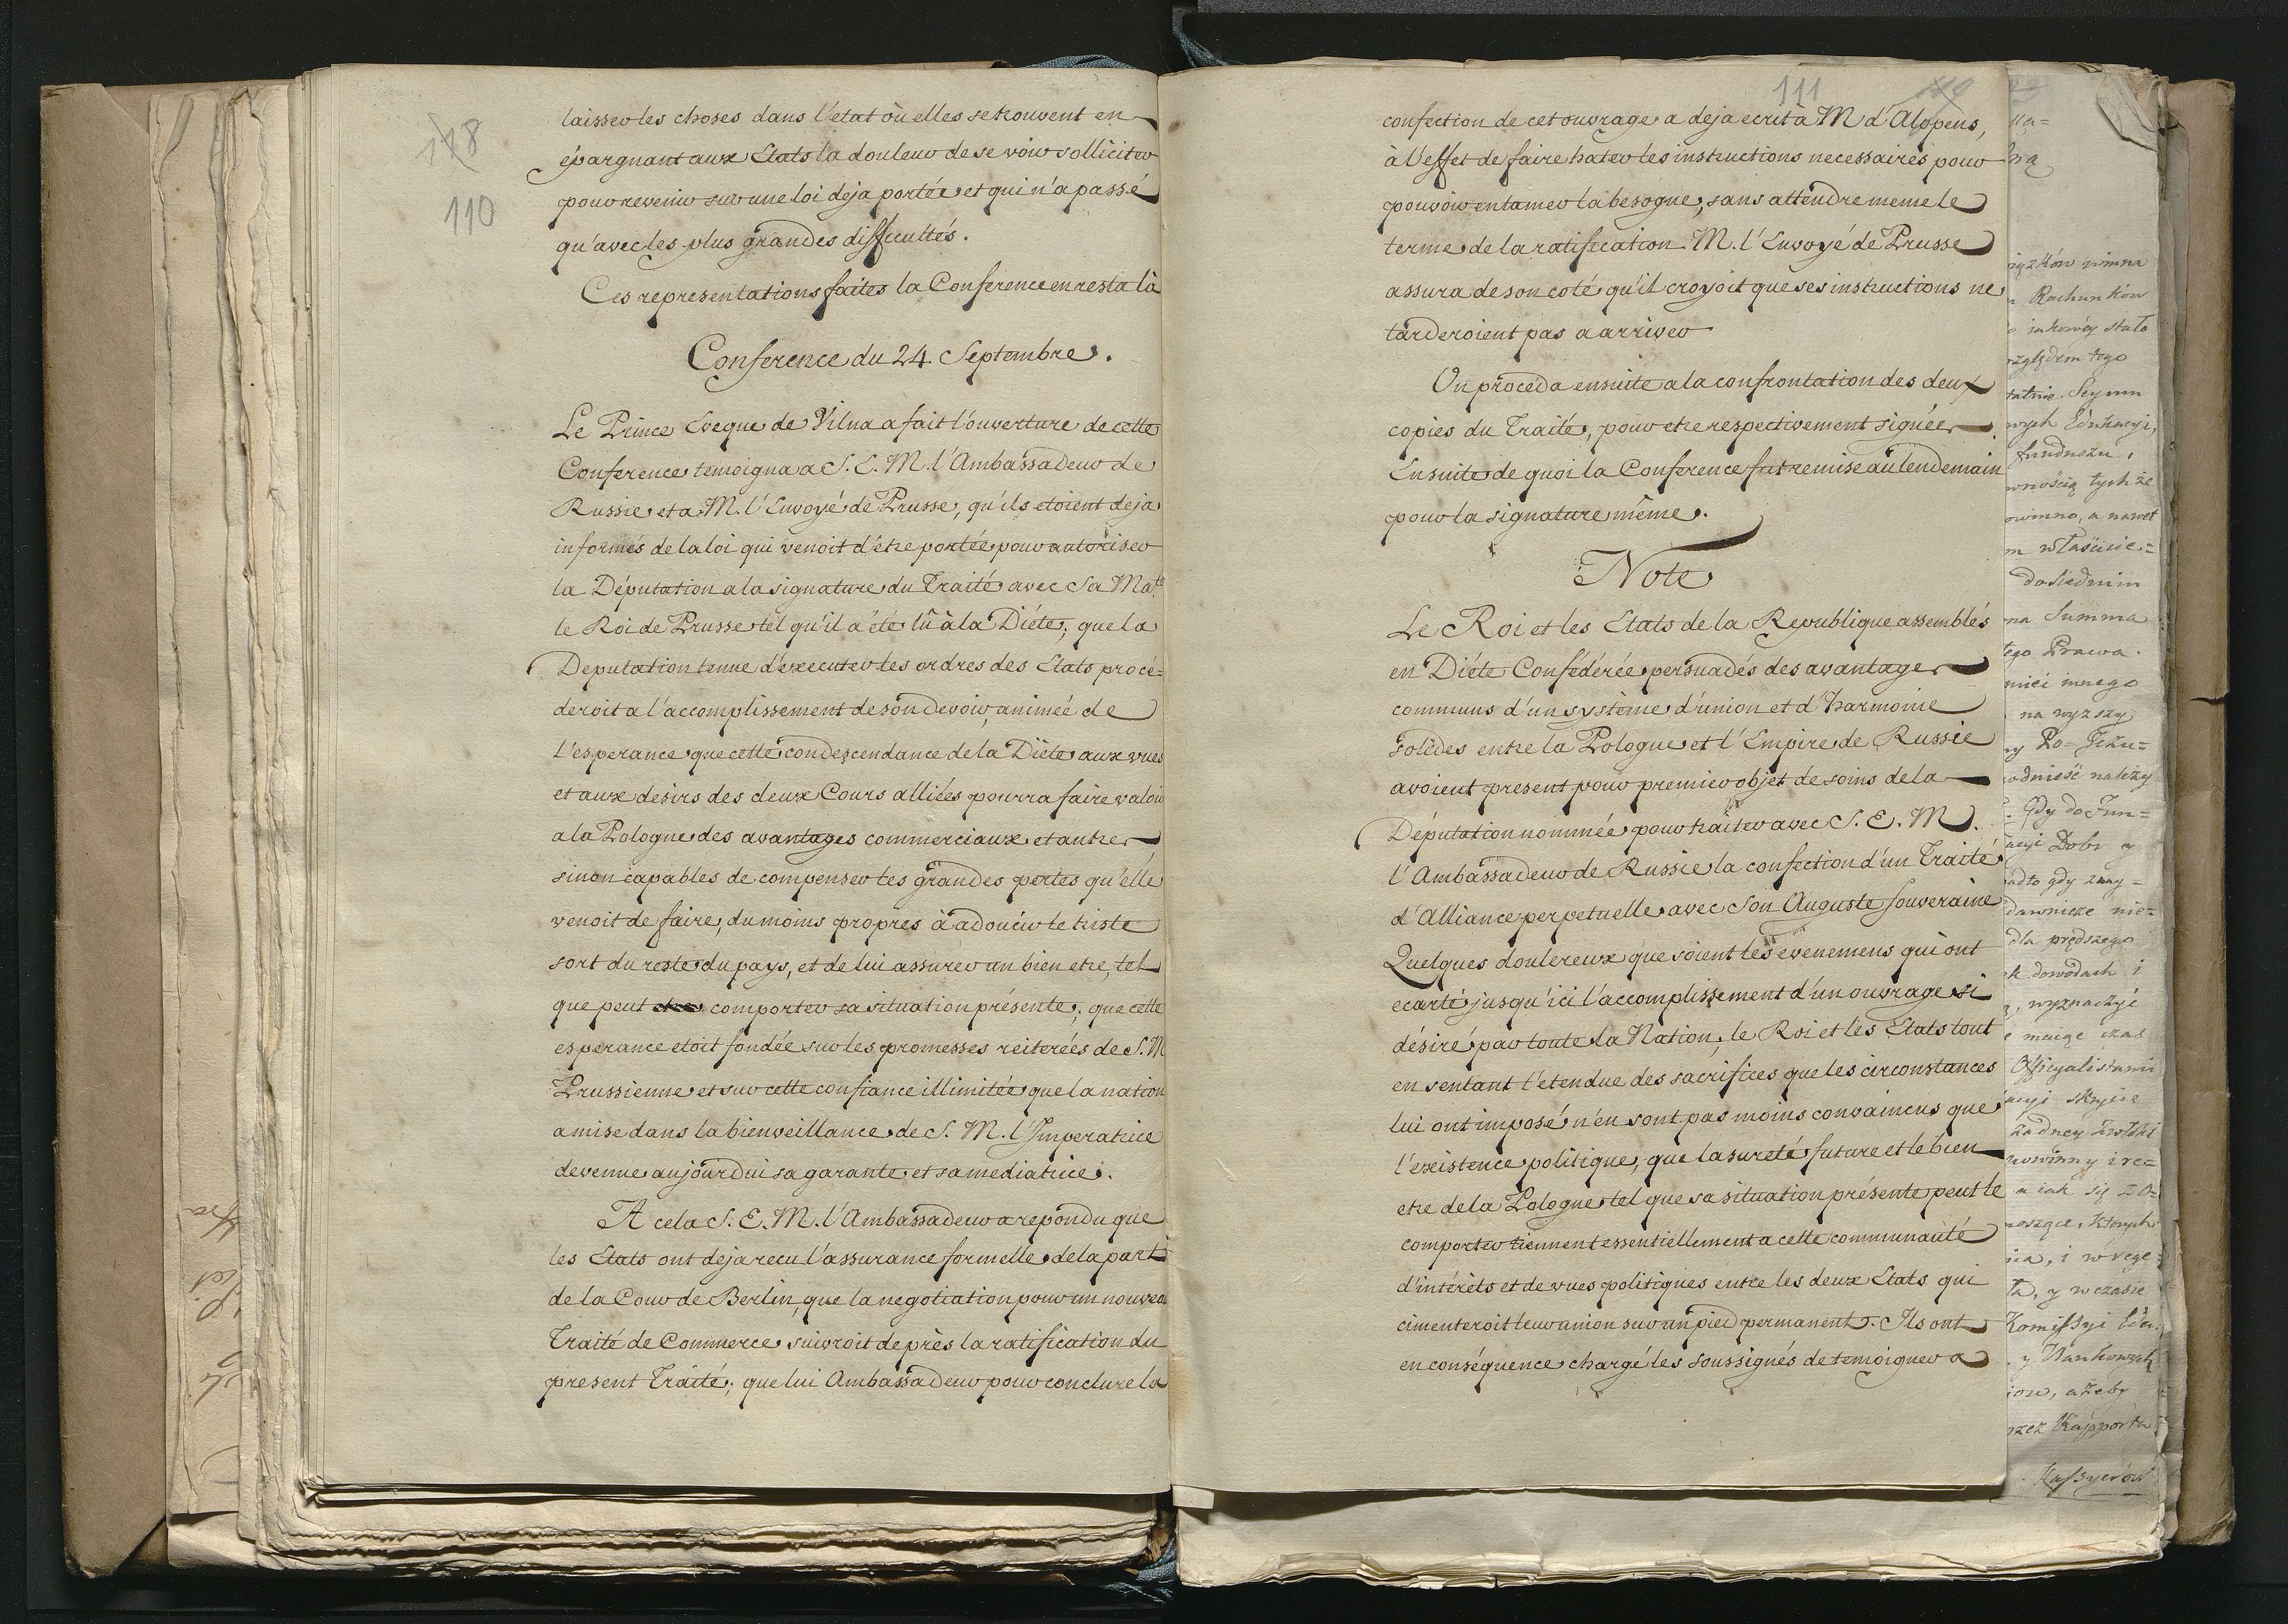 118
110
laisser les choses dans l'etat où elles se trouvent en
épargnant aux Etats la douleur de se voir solliciter
pour revenir sur une loi deja portée et qui n'a passé
qu'avec les plus grandes difficultés.
Ces representations faites la Conference en resta là
Conference du 24. Septembre.
Le Prince Eveque de Vilna a fait l'ouverture de cette
Conference temoigna a S. E. M. l'Ambassadeur de
Russie et a M. l'Envoyé de Prusse, qu'ils etoient deja
informés de la loi qui venoit d'être portée pour autoriser
la Députation a la signature du Traité avec Sa Maté
le Roi de Prusse tel qu'il a été lû à la Diéte; que la
Deputation tenue d'executer les ordres des Etats procé=
deroit a l'accomplissement de son devoir, animée de
L'esperance que cette condescendance de la Diéte aux vues
et aux desirs des deux Cours alliées pourra faire valoir
a la Pologne des avantages commerciaux et autres
sinon capables de compenser les grandes pertes qu'elle
venoit de faire, du moins propres à adoucir le triste
sort du reste du pays, et de lui assurer un bien etre, tel
que peut etre comporter sa situation présente; que cette
esperance etoit fondée sur les promesses reiterées de S. M
Prussienne et sur cette confiance illimitée que la nation
a mise dans la bienveillance de S. M. l'Imperatrice
devenue aujourdui sa garante et sa mediatrice.
A cela S. E. M. l'Ambassadeur a repondu que
les Etats ont deja recu l'assurance formelle de la part
de la Cour de Berlin, que la negotiation pour un nouveau
Traité de Commerce suivroit de près la ratification du
present Traité; que lui Ambassadeur pour conclure la
111
confection de cet ouvrage a deja ecrit à M d'Alopeus,
à l'effet de faire hater les instructions necessaires pour
pouvoir entamer la besogne, sans attendre meme le
terme de la ratification. M. l'Envoyé de Prusse
assura de son coté qu'il croyoit que ses instructions ne
tarderoient pas a arriver
On proceda ensuite a la confrontation des deux
copies du Traité, pour etre respectivement signées
Ensuite de quoi la Conference fut remise au lendemain
pour la signature même.
Note
Le Roi et les Etats de la Republique assemblés
en Diéte Confédérée persuadés des avantages
communs d'un système d'union et d'harmonie
solides entre la Pologne et l'Empire de Russie
avoient present pour premier objet de soins de la
Députation nommée pour traiter avec S. E. M.
l'Ambassadeur de Russie la confection d'un Traité
d'Alliance perpetuelle avec Son Auguste Souveraine
Quelques doulereux que soient les evenemens qui ont
ecarté jusqu'ici l'accomplissement d'un ouvrage si
désiré par toute la Nation, le Roi et les Etats tout
en sentant l'etendue des sacrifices que les circonstances
lui ont imposé n'en sont pas moins convaincus que
l'existence politique, que la sureté future et le bien
etre de la Pologne tel que sa situation présente peut le
comporter tiennent essentiellement a cette communauté
d'intérets et de vues politiques entre les deux Etats qui
cimenteroit leur union sur un pied permanent. Ils ont
en conséquence chargé les soussignés de temoigner a
winna
Rachunków
stało
względem tego
Seym
Edukacyi,
funduszu,
tych że
a nawet
właścicie=
Summa
Prawa.
innego
na wyższy
należy
Gdy do Fun=
Dobr y
gdy
dla prędszego
dowodach i
wyznaczyć
czas
Officyalistami
żadney
a iak się
Ktorych
y w czasie
Komissyi
ażeby
Kassyerów